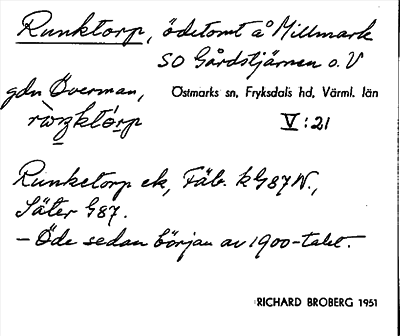 Runktorp, ödetomt å Millmark
SO Gårdstjärnen o. V
gdn Överman, Östmarks sn, Fryksdals hd, Värml. län
V:21
Runketorp ek, Fäb. k G87N.,
Säter G87.
– Öde sedan början av 1900-talet.
RICHARD BROBERG 1951